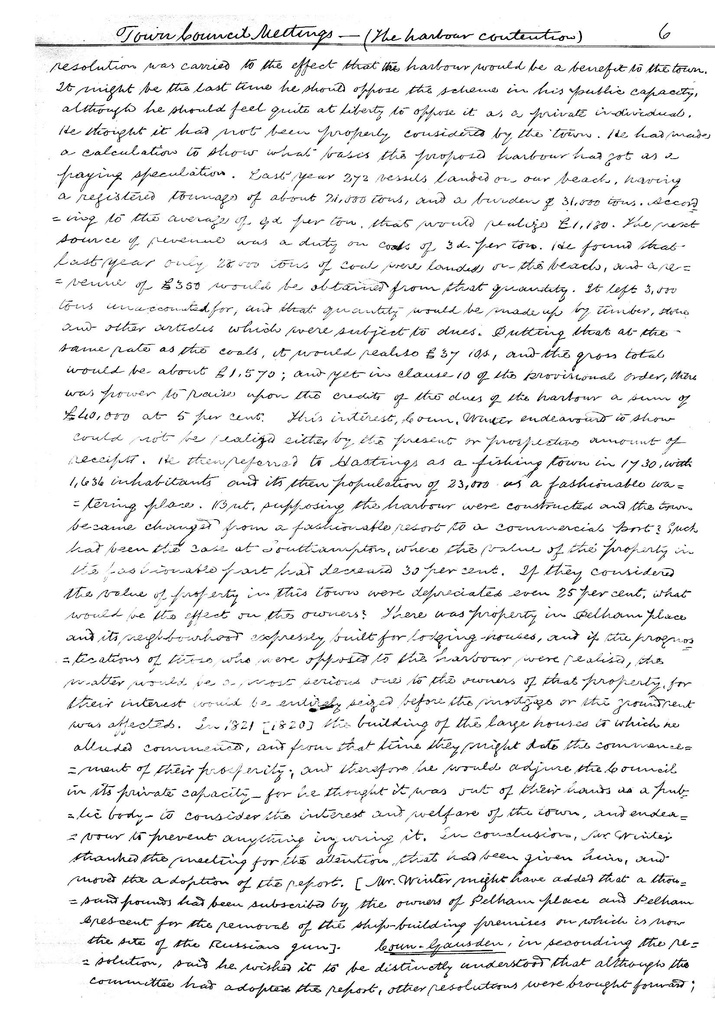 Town Council Meetings — (The harbour contention) 6
resolution was carried to the effect that the harbour would be a benefit to the town.
It might be the last time he should oppose the scheme in his public capacity,
although he should feel quite at liberty to oppose it as a private individual.
He thought it had not been properly considered by the town. He had made
a calculation to show what basis the proposed harbour had got as a
paying speculation. Last year 372 vessels landed on our beach, having
a registered tounage of about 21,000 tons, and a burden of 31,000 tons. Accord
=ing to the average of 9d per ton, that would realize £1,180. The next
source of revenue was a duty on coals of 3d. per ton. He found that
last year only 28000 tons of coal were landed on the beach, and a re=
=venue of £350 would be obtained from that quantity. It left 3,000
tons unaccounted for, and that quantity would be made up by timber,
and other articles which were subject to dues. Putting that at the
same rate as the coals, it would realise £37 10s, and the gross total
would be about £1,570; and yet in clause 10 of the Provisional order, there
was power to raise upon the credit of the dues of the harbour a sum of
£40,000 at 5 per cent. This interest, Coun. Winter endeavourd to show
could not be realized either by the present or prospective amount of
receipts. He then referred to Hastings as a fishing town in 1730, with
1,636 inhabitants and its then population of 23,000 as a fashionable wa=
=tering place. But, supposing the harbour were constructed and the town
became changed from a fashionable resort to a commercial port? Such
had been the case at Southampton, where the value of the property in
the fashionable part had decreased 30 per cent. If they considered
the value of property in this town were depreciated even 25 per cent, what
would be the effect on the owners? There was property in Pelham place
and its neighbourhood expressly built for lodging-houses, and if the prognos
=tications of those, who were opposed to the harbour were realised, the
matter would be a most serious one to the owners of that property, for
their interest would be entirely seized before the mortgage or the groundrent
was affected. In 1821 [1820] the building of the large houses to which he
alluded commenced, and from that time they might date the commence=
=ment of their prosperity; and therefore he would adjure the Council
in its private capacity — for he thought it was out of their hands as a pub
=lic body — to consider the interest and welfare of the town, and endea=
=vour to prevent anything injuring it. In conclusion, Mr. Winter
thanked the meeting for the attention that had been given him, and
moved the adoption of the report. [Mr. Winter might have added that a thou=
=sand pounds had been subscribed by the owners of Pelham place and Pelham
Crescent for the removal of the ship-building premises on which is now
the site of the Russian gun]. Coun. Gausden, in seconding the re=
=solution, said he wished it to be distinctly understood that although the
committee had adopted the report, other resolutions were brought forward;